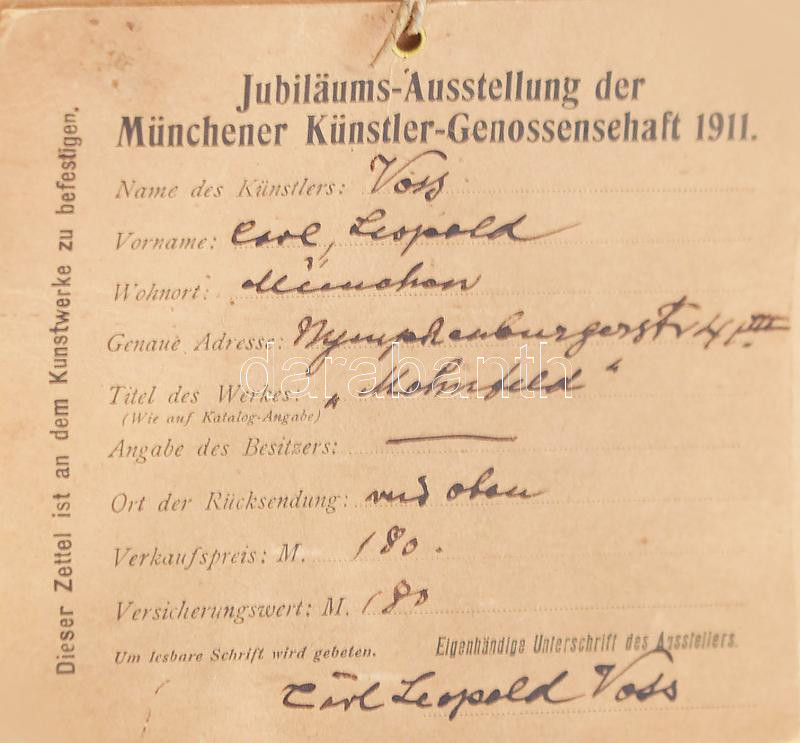 Jubiläums-Ausstellung der
Münchener Künstler-Genossensehaft 1911.
Name des Künstlers: Voss
Vorname: Carl, Leopold
Wohnort: München
Genaue Adresse: Nymphenburgerstr 4 III
Titel des Werkes: „Mohnfeld“
(Wie auf Katalog-Angabe)
Angabe des Besitzers: —
Ort der Rücksendung: oben
Verkaufspreis: M. 180.
Versicherungswert: M. 180
Um lesbare Schrift wird gebeten.
Eigenhändige Unterschrift des Ausstellers.
Carl Leopold Voss
Dieser Zettel ist an dem Kunstwerke zu befestigen.
darabanth